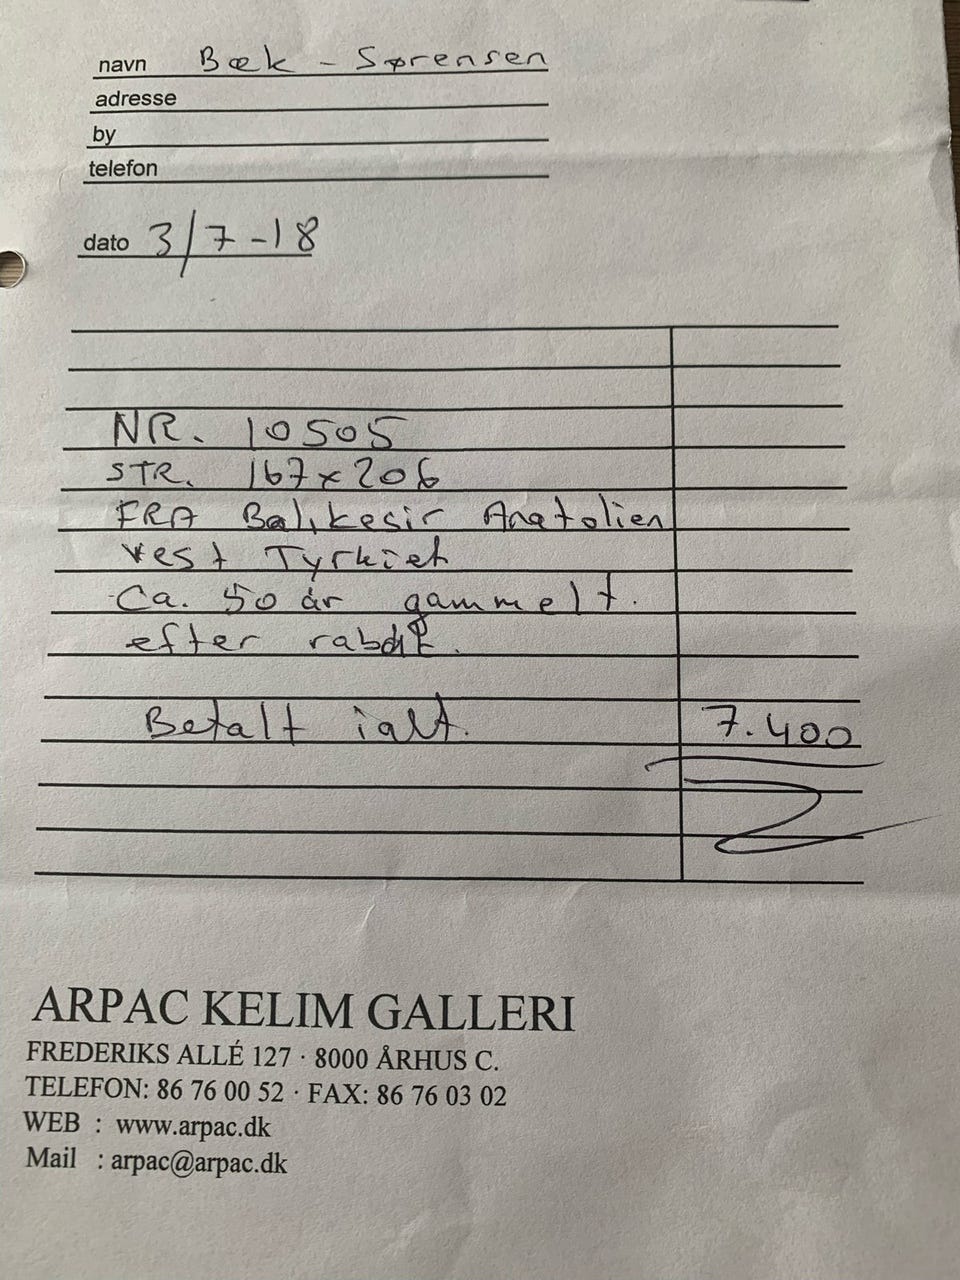 navn Bæk - Sørensen
adresse
by
telefon
dato 3/7-18
NR. 10505
STR. 167x206
FRA Balıkesir Anatolien
vest Tyrkiet
Ca. 50 år gammelt.
efter rabat.
Betalt ialt. 7.400
ARPAC KELIM GALLERI
FREDERIKS ALLÉ 127 · 8000 ÅRHUS C.
TELEFON: 86 76 00 52 · FAX: 86 76 03 02
WEB : www.arpac.dk
Mail : arpac@arpac.dk